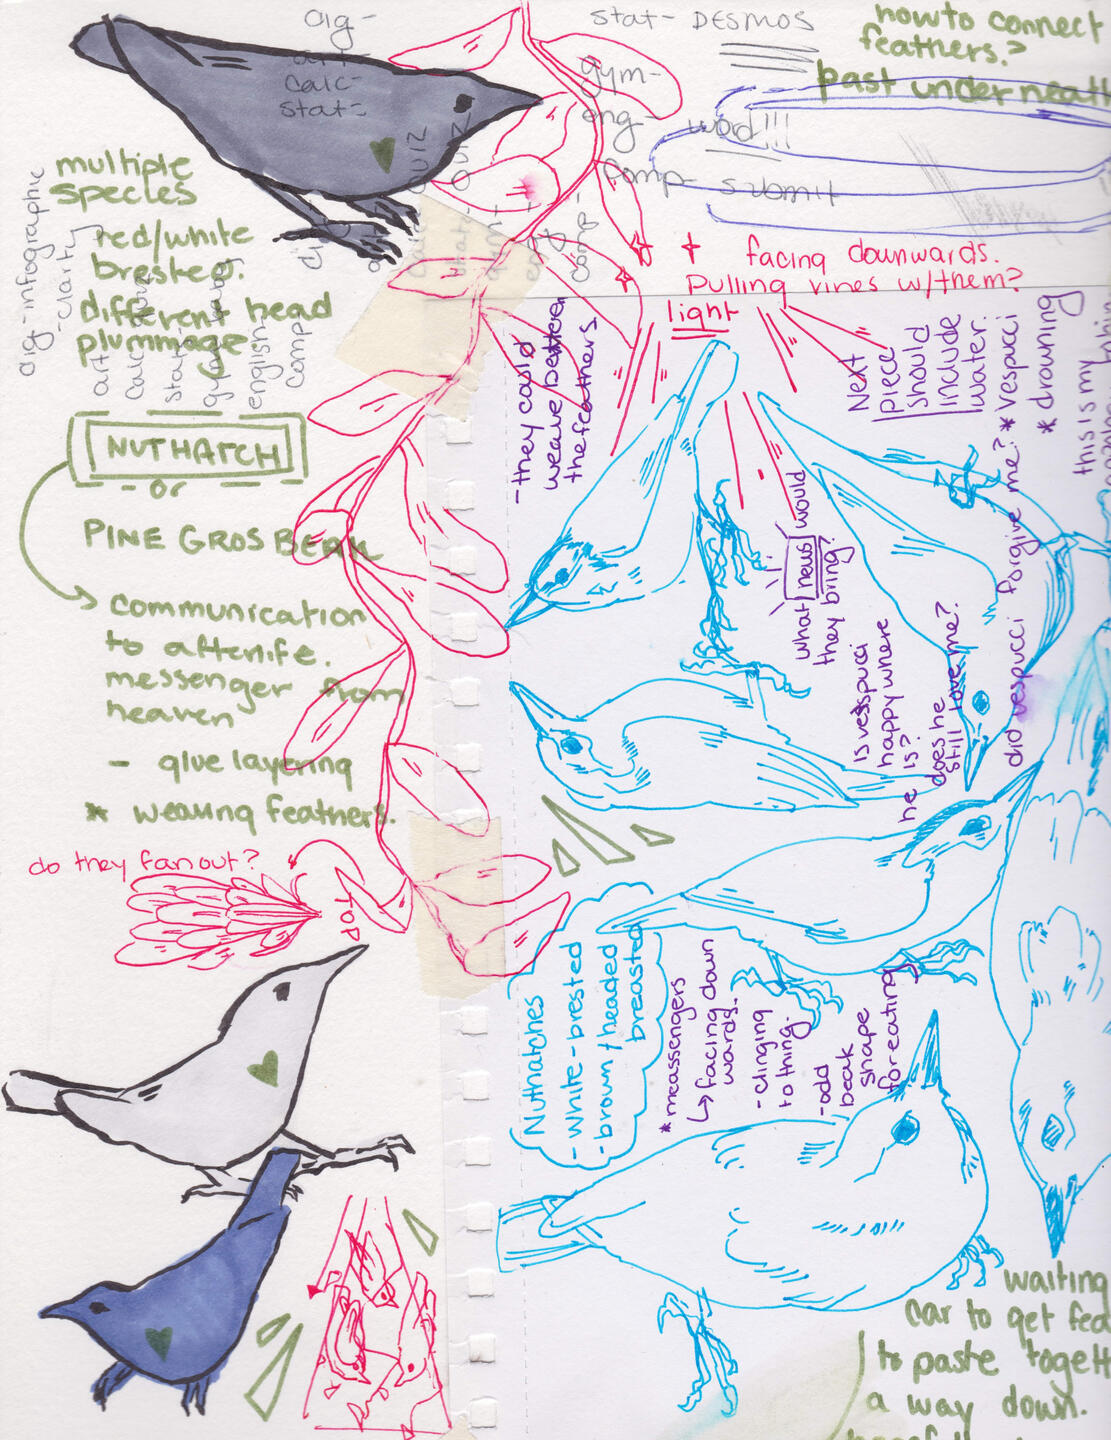 dig-
art
calc-
stat-
stat- DESMOS
gym-
eng- word!!!
comp- submit
how to connect
feathers?
past underneath
multiple
species
red/white
brested.
different head
plummage.
dig-infographic
-clarity
art
stat
english
comp
NUTHATCH
- or
PINE GROSBEAK
communication
to afterlife.
messenger from
heaven
- glue layering
* weaving feathers.
do they fan out?
facing downwards.
Pulling vines w/them?
light
- they could
weave between
the feathers.
Next
piece
should
include
water.
* vespucci
* drowning
this is my
what news would
they bring?
is vesspucci
happy where
he is?
does he
still love me?
did vespucci forgive me?
Nuthatches
- white-brested
- brown/headed
breasted
* meassengers
↳ facing down
wards.
- clinging
to thing.
- odd
beak
shape
for eating
waiting
car to get fea
to paste togeth
a way down.